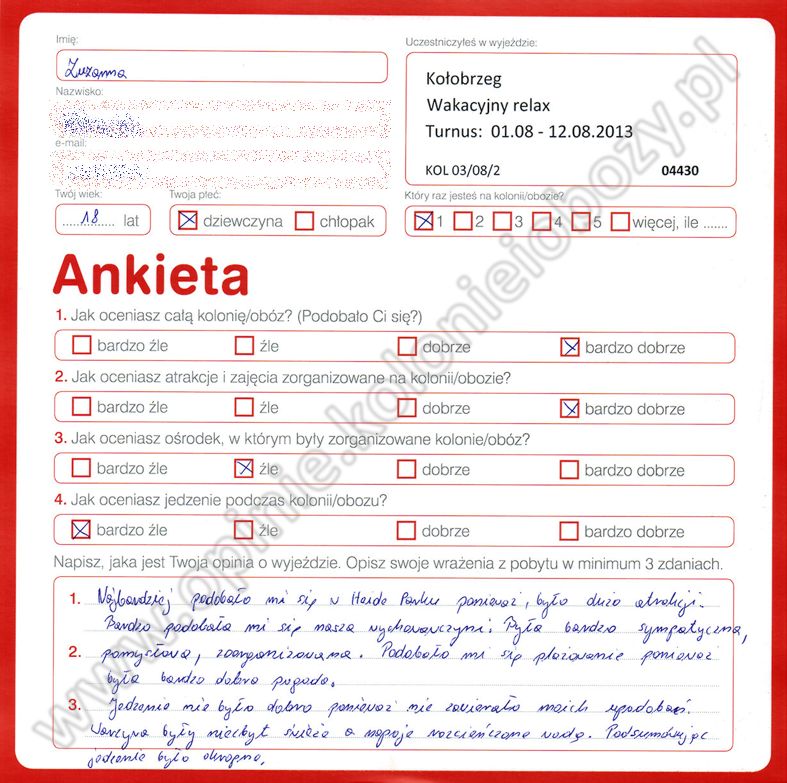 Imię:
Zuzanna
Nazwisko:
e-mail:
Twój wiek:
18 lat
Twoja płeć:
dziewczyna chłopak
Uczestniczyłeś w wyjeździe:
Kołobrzeg
Wakacyjny relax
Turnus: 01.08 - 12.08.2013
KOL 03/08/2 04430
Który raz jesteś na kolonii/obozie?
1 2 3 4 5 więcej, ile .......
Ankieta
1. Jak oceniasz całą kolonię/obóz? (Podobało Ci się?)
bardzo źle źle dobrze bardzo dobrze
2. Jak oceniasz atrakcje i zajęcia zorganizowane na kolonii/obozie?
bardzo źle źle dobrze bardzo dobrze
3. Jak oceniasz ośrodek, w którym były zorganizowane kolonie/obóz?
bardzo źle źle dobrze bardzo dobrze
4. Jak oceniasz jedzenie podczas kolonii/obozu?
bardzo źle źle dobrze bardzo dobrze
Napisz, jaka jest Twoja opinia o wyjeździe. Opisz swoje wrażenia z pobytu w minimum 3 zdaniach.
1. Najbardziej podobało mi się w Heide Parku ponieważ, było dużo atrakcji.
Bardzo podobała mi się nasza wychowawczyni. Była bardzo sympatyczna,
2. pomysłowa, zoorganizowana. Podobało mi się plażowanie ponieważ
była bardzo dobra pogoda.
3. Jedzenie nie było dobre ponieważ nie zawierało moich upodobań.
Warzywa były niezbyt świeże a napoje rozcieńczone wodą. Podsumowując
jedzenie było okropne.
www.opinie.kolonieiobozy.pl